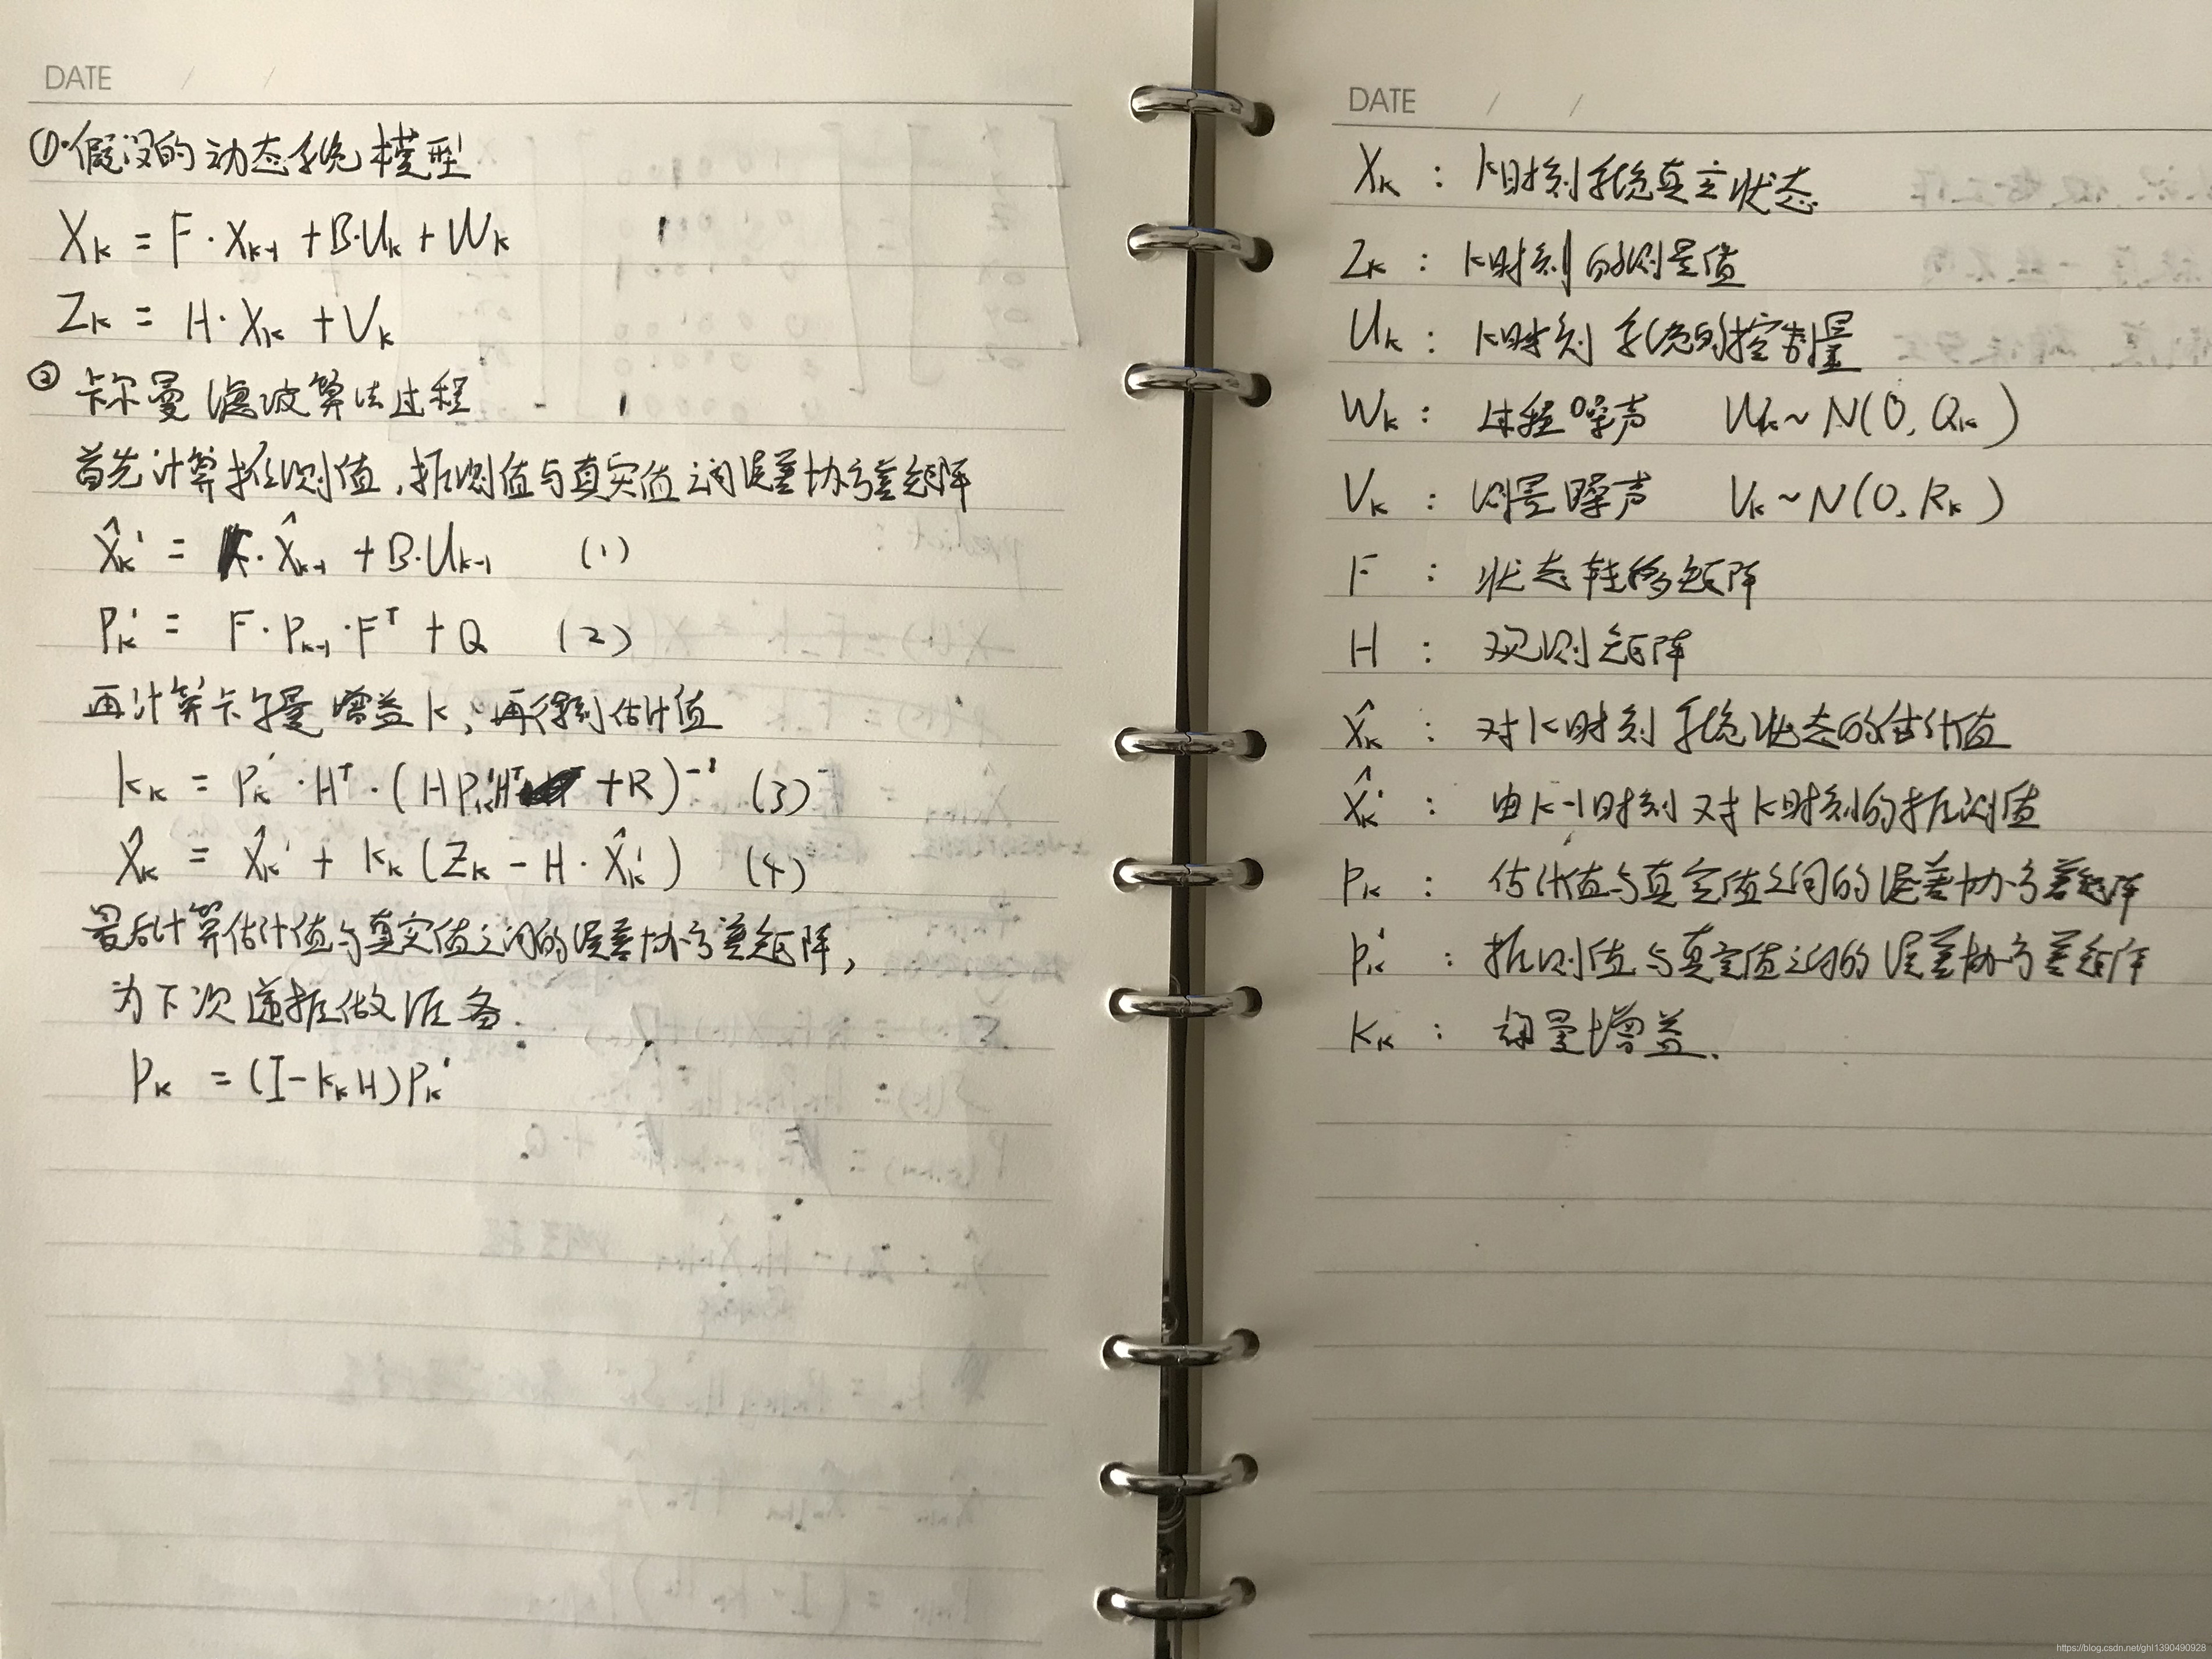 DATE / /
①假设的动态系统模型
Xₖ = F·Xₖ₋₁ + B·Uₖ + Wₖ
Zₖ = H·Xₖ + Vₖ
② 卡尔曼滤波算法过程
首先计算推测值,推测值与真实值之间误差协方差矩阵
X̂ₖ' = F·X̂ₖ₋₁ + B·Uₖ₋₁ (1)
Pₖ' = F·Pₖ₋₁·Fᵀ + Q (2)
再计算卡尔曼增益K,再得到估计值
Kₖ = Pₖ'·Hᵀ·(HPₖ'Hᵀ + R)⁻¹ (3)
X̂ₖ = X̂ₖ' + Kₖ(Zₖ - H·X̂ₖ') (4)
最后计算估计值与真实值之间的误差协方差矩阵,
为下次递推做准备.
Pₖ = (I-KₖH)Pₖ'
DATE / /
Xₖ : K时刻系统真实状态
Zₖ : K时刻的测量值
Uₖ : K时刻系统的控制量
Wₖ : 过程噪声 Wₖ~N(0, Qₖ)
Vₖ : 测量噪声 Vₖ~N(0, Rₖ)
F : 状态转移矩阵
H : 观测矩阵
X̂ₖ : 对K时刻系统状态的估计值
X̂ₖ' : 由K-1时刻对K时刻的推测值
Pₖ : 估计值与真实值之间的误差协方差矩阵
Pₖ' : 推测值与真实值之间的误差协方差矩阵
Kₖ : 增益.
https://blog.csdn.net/ghl1390490928